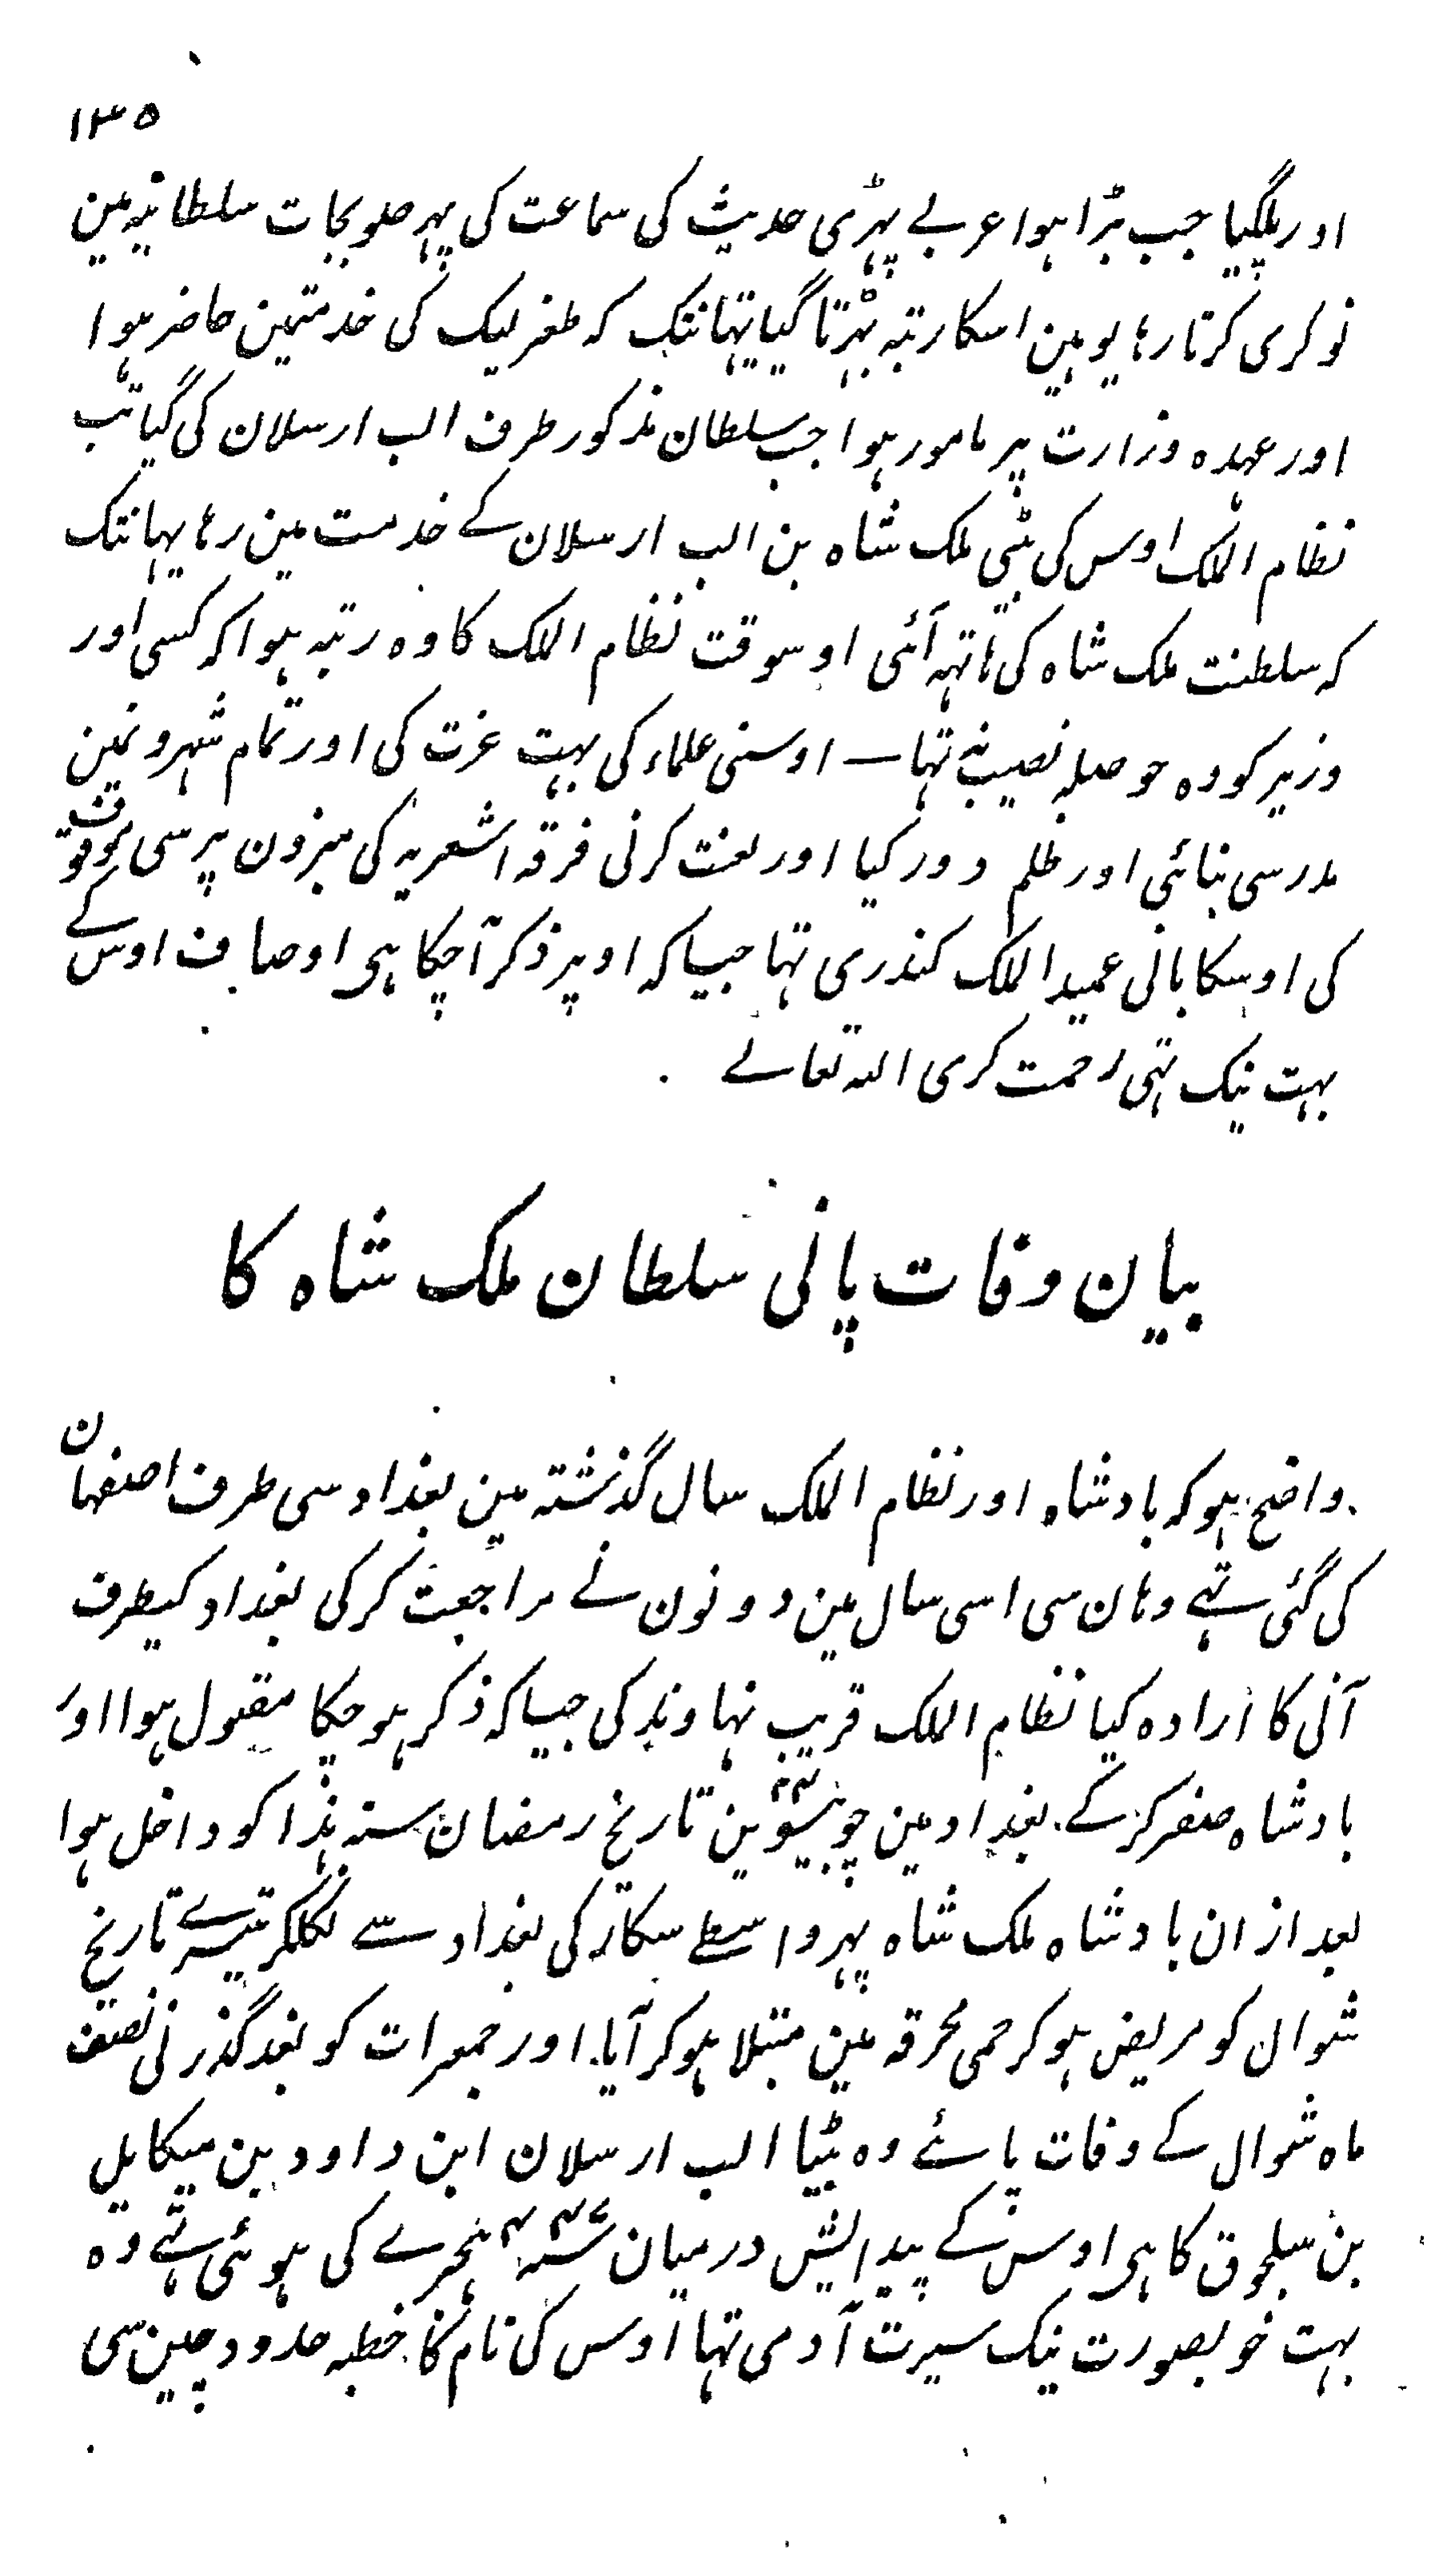 ١٣٥
اور پلگیا جب بڑا ہوا عربے پہڑی حدیث کی سماعت کی پہر صلوبجات سلطانیہ مین
نوکری کرتا رہا یوہین اسکا رتبہ بہڑتا گیا یہانتک کہ طغرلبیک کی خدمتمین حاضر ہوا
اور عہدہ وزارت پر مامور ہوا جب سلطان مذکور طرف الب ارسلان کی گیا تب
نظام الملک اوس کی بیٹی ملک شاہ بن الب ارسلان کے خدمت مین رہا یہانتک
کہ سلطنت ملک شاہ کی ہاتہہ آئی اوسوقت نظام الملک کا وہ رتبہ ہوا کہ کسی اور
وزیر کو وہ حوصلہ نصیب نہ تہا — اوسنی علماء کی بہت عزت کی اور تمام شہرونمین
مدرسی بنائی اور ظلم دور کیا اور لعنت کرنی فرقہ اشعریہ کی منبرون پر سی موقوف
کی اوسکا بانی عمید الملک کندری تہا جیسا کہ اوپر ذکر آچکا ہی اوصاف اوس کے
بہت نیک تہی رحمت کری اللہ تعالے
بیان وفات پانی سلطان ملک شاہ کا
واضح ہو کہ بادشاہ اور نظام الملک سال گذشتہ مین بغداد سی طرف اصفہان
کی گئی تہے وہان سی اسی سال مین دونون نے مراجعت کر کی بغداد کیطرف
آنی کا ارادہ کیا نظام الملک قریب نہاوند کی جیسا کہ ذکر ہو چکا مقتول ہوا اور
بادشاہ صفر کر کے بغداد مین چوبیسوین ٢٤ تاریخ رمضان سنہ ہذا کو داخل ہوا
بعد ازان بادشاہ ملک شاہ پہر واسطے سکار کی بغداد سے نکلکر تیسرے تاریخ
شوال کو مریض ہو کر حمی محرقہ مین مبتلا ہو کر آیا اور جمعرات کو بعد گذرنی نصف
ماہ شوال کے وفات پائے وہ بیٹا الب ارسلان ابن داود بن میکایل
بن سلجوق کا ہی اوس کے پیدایش درمیان سنہ ٤٤٧ ہجرے کی ہوئی تہے وہ
بہت خوبصورت نیک سیرت آدمی تہا اوس کی نام کا خطبہ حدود چین سی